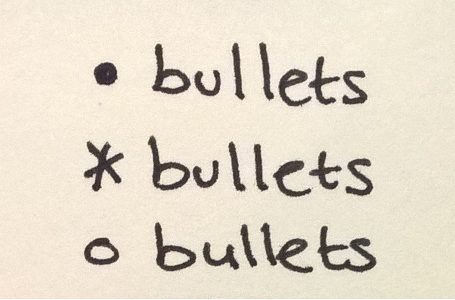 • bullets
* bullets
o bullets